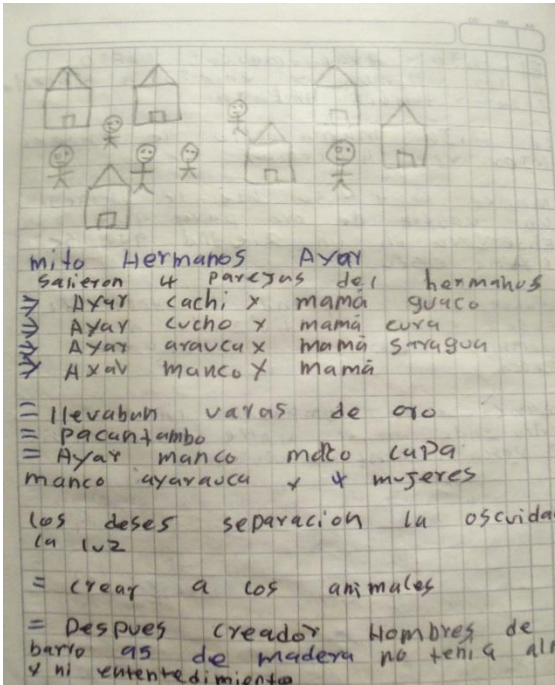 mito Hermanos Ayar
salieron 4 parejas del hermanos
Ayar cachi y mamá guaco
Ayar cucho y mamá cura
Ayar arauca y mamá saragua
Ayar manco y mamá
= llevaban varas de oro
= pacantambo
= Ayar manco maco capa
manco ayarauca y 4 mujeres
los deses separacion la oscuida
la luz
= crear a los animales
= Despues creador Hombres de
barro as de madera no tenia alm
y ni entendedimiento